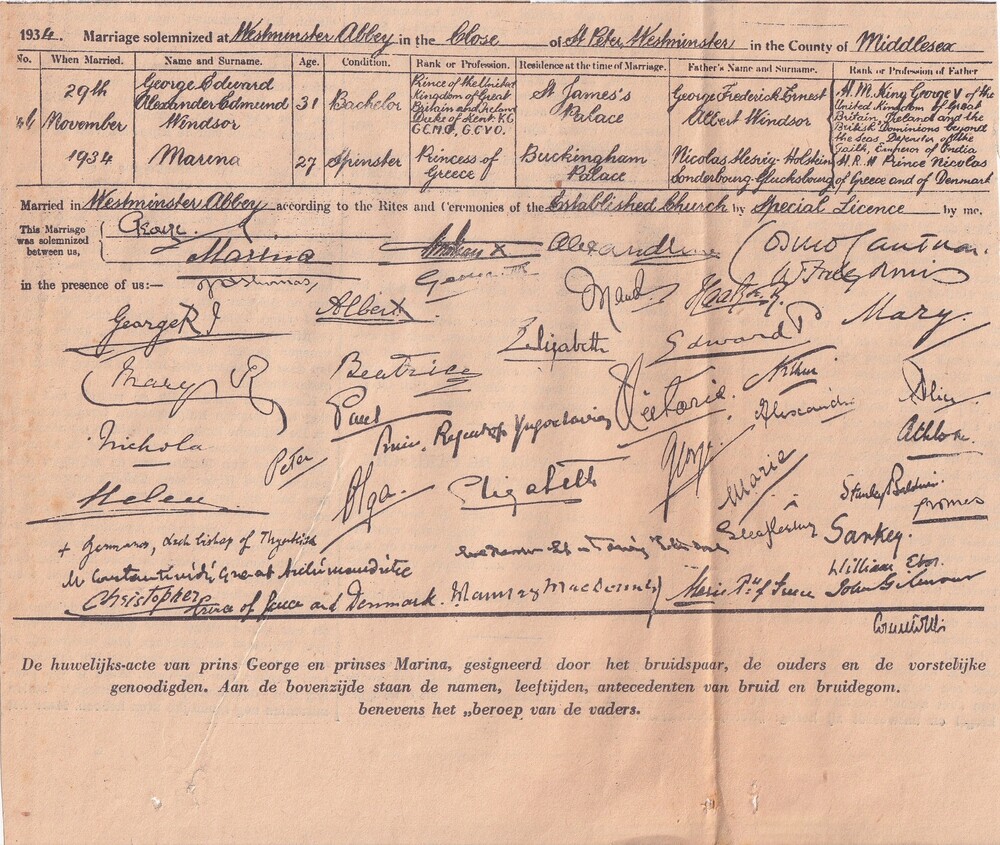 1934. Marriage solemnized at Westminster Abbey in the Close of St Peter, Westminster in the County of Middlesex
No. When Married. Name and Surname. Age. Condition. Rank or Profession. Residence at the time of Marriage. Father's Name and Surname. Rank or Profession of Father
29th November 1934
George Edward Alexander Edmund Windsor
31
Bachelor
Prince of the United
Kingdom of Great
Britain and Ireland
Duke of Kent. K.G
G.C.M.G., G.C.V.O.
St James's
Palace
George Frederick Ernest
Albert Windsor
H. M. King George V of the
United Kingdom of Great
Britain, Ireland and the
British Dominions beyond
the Seas, Defender of the
Faith, Emperor of India
Marina
27
Spinster
Princess of
Greece
Buckingham
Palace
Nicolas
Sonderbourg-Glucksbourg
H.R.H Prince Nicolas
of Greece and of Denmark
Married in Westminster Abbey according to the Rites and Ceremonies of the Established Church by Special Licence by me,
This Marriage
was solemnized
between us,
George.
Marina
in the presence of us:—
George R I
Albert
Elizabeth
Maud
Haakon R.
Edward P
Mary.
Mary R
Beatrice
Victoria.
Arthur
Alice
Nichola
Paul
Regent of Yugoslavia
Alexandra
Athlone.
Peter
Helen
Olga.
Elizabeth
George
Marie
Stanley Baldwin.
+ Germanos, Archbishop of Thyateira
Sankey.
M Constantinidi, Great Archimandrite
William Ebor.
Christopher
Prince of Greece and Denmark.
J Ramsay MacDonald
Marie Pss of Greece
John Gilmour
De huwelijks-acte van prins George en prinses Marina, gesigneerd door het bruidspaar, de ouders en de vorstelijke
genoodigden. Aan de bovenzijde staan de namen, leeftijden, antecedenten van bruid en bruidegom.
benevens het „beroep van de vaders.